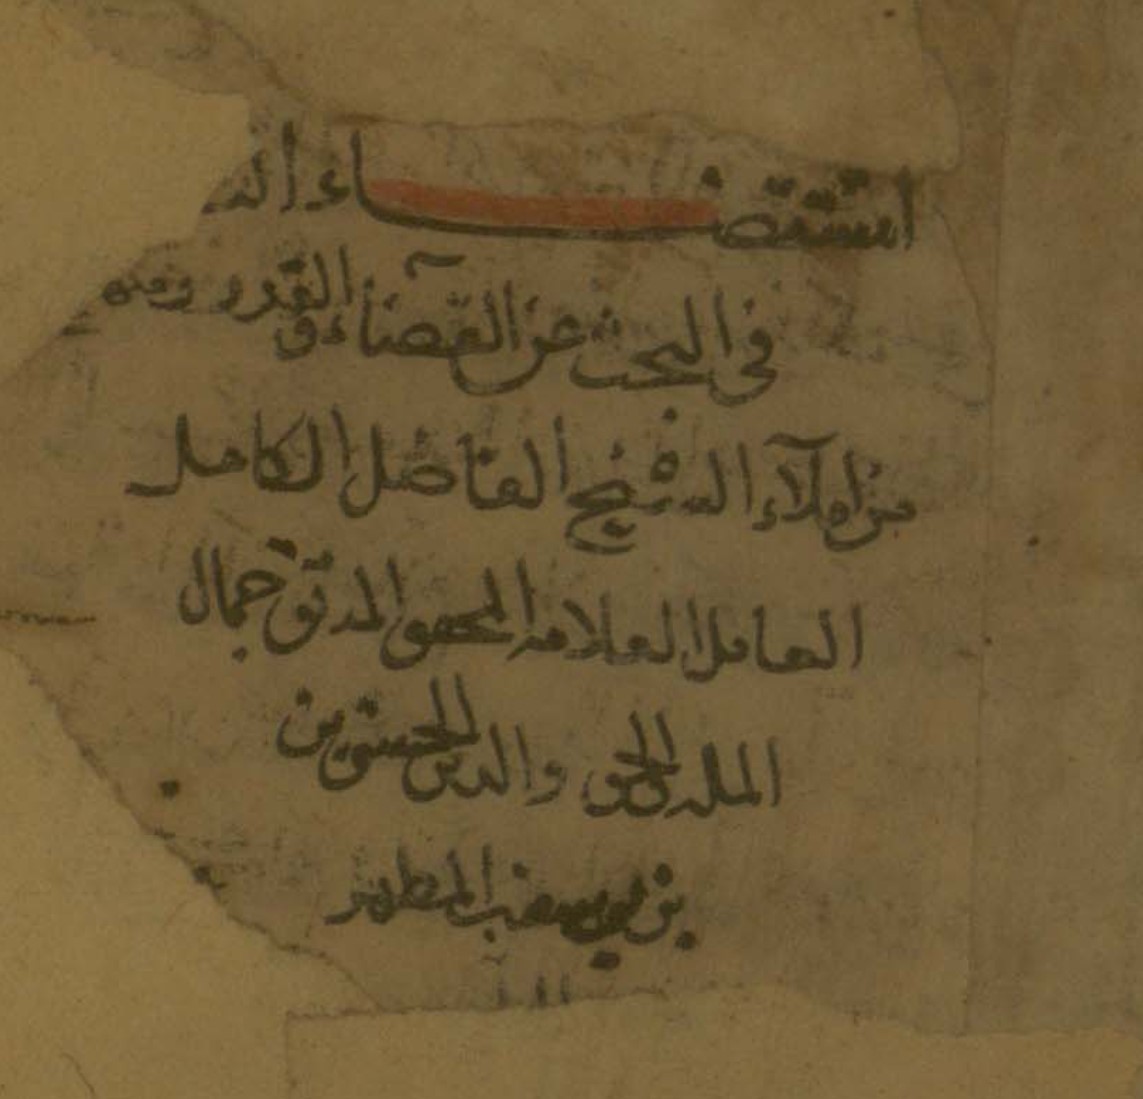 استقصاء
في البحث عن القضاء والقدر
من املآء الشيخ الفاضل الكامل
العامل العلامه المحقق المدقق جمال
المله والحق والدين الحسن بن
بن يوسف المطهر